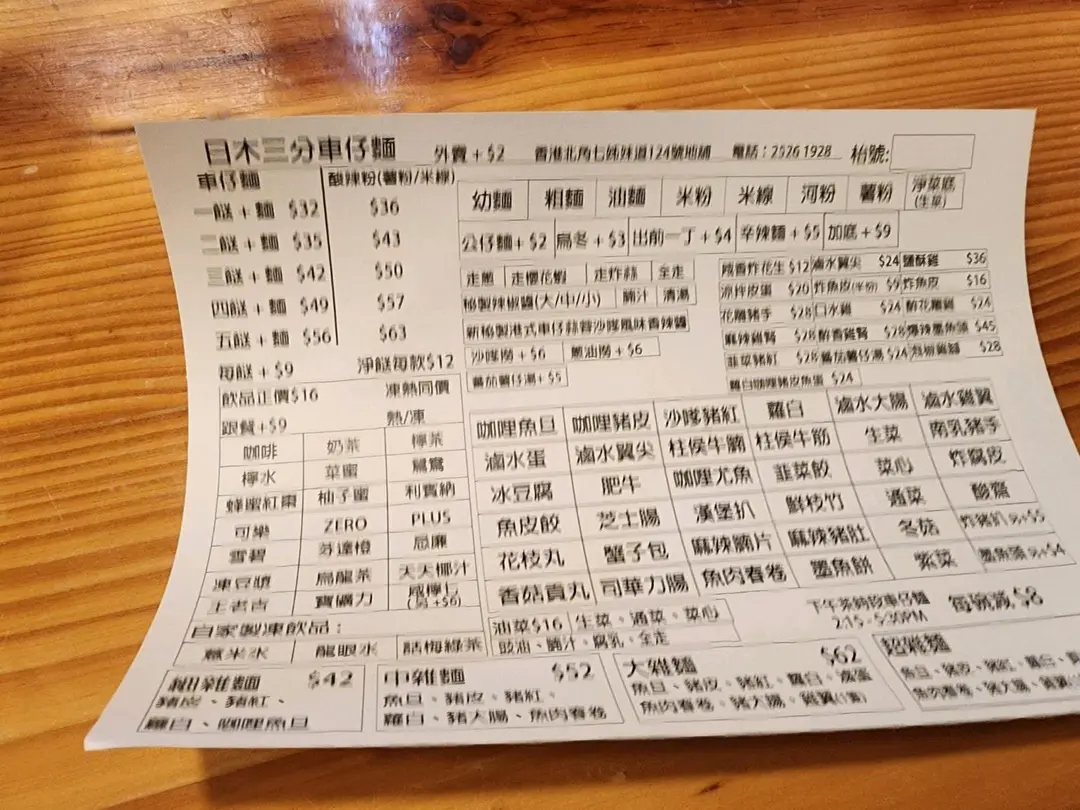 日木三分車仔麵 外賣+$2 香港北角七姊妹道124號地舖 電話:2526 1928 枱號:
車仔麵 酸辣粉(薯粉/米線)
一餸+麵 $32 $36
二餸+麵 $35 $43
三餸+麵 $42 $50
四餸+麵 $49 $57
五餸+麵 $56 $63
每餸+$9 淨餸每款$12
幼麵 粗麵 油麵 米粉 米線 河粉 薯粉 淨菜底(生菜)
公仔麵+$2 烏冬+$3 出前一丁+$4 辛辣麵+$5 加底+$9
走蔥 走櫻花蝦 走炸蒜 全走
秘製辣椒醬(大/中/小) 腩汁 清湯
新秘製港式車仔蒜蓉沙嗲風味香辣醬
沙嗲撈+$6 蔥油撈+$6
蕃茄薯仔湯+$5
炸花生$12 滷水翼尖 $24 鹽酥雞 $36
涼拌皮蛋 $20 炸魚皮(半份) $9 炸魚皮 $16
花雕豬手 $28 口水雞 $24 醉花雕雞 $24
麻辣雞腎 $28 醉香雞腎 $28 爆辣墨魚頭 $45
韭菜豬紅 $28 蕃茄薯仔湯 $24 泡椒雞腳 $28
蘿白咖喱豬皮魚蛋 $24
飲品正價$16 凍熱同價
跟餐+$9 熱/凍
咖啡 奶茶 檸茶
檸水 菜蜜 鴛鴦
蜂蜜紅棗 柚子蜜 利賓納
可樂 ZERO PLUS
雪碧 芬達橙 忌廉
凍豆漿 烏龍茶 天天椰汁
王老吉 寶礦力 咸檸七(另+$6)
自家製凍飲品:
薏米水 龍眼水 話梅綠茶
咖哩魚旦 咖哩豬皮 沙嗲豬紅 蘿白 滷水大腸 滷水雞翼
滷水蛋 滷水翼尖 柱侯牛腩 柱侯牛筋 生菜 南乳豬手
冰豆腐 肥牛 咖哩尤魚 韭菜餃 菜心 炸腐皮
魚皮餃 芝士腸 漢堡扒 鮮枝竹 通菜 酸齋
花枝丸 蟹子包 麻辣腩片 麻辣豬肚 冬菇 炸豬扒 另+$5
香菇貢丸 司華力腸 魚肉春卷 墨魚餅 紫菜 墨魚頭 另+$4
油菜$16 生菜、通菜、菜心
豉油、腩汁、腐乳、全走
下午茶時段車仔麵 每碗減$8
2:15-5:30PM
細雜麵 $42
豬皮、豬紅、
蘿白、咖哩魚旦
中雜麵 $52
魚旦、豬皮、豬紅、
蘿白、豬大腸、魚肉春卷
大雜麵 $62
魚旦、豬皮、豬紅、蘿白、滷蛋
魚肉春卷、豬大腸、雞翼(1隻)
超雜麵
魚旦、豬皮、豬紅、蘿白、
魚肉春卷、豬大腸、雞翼